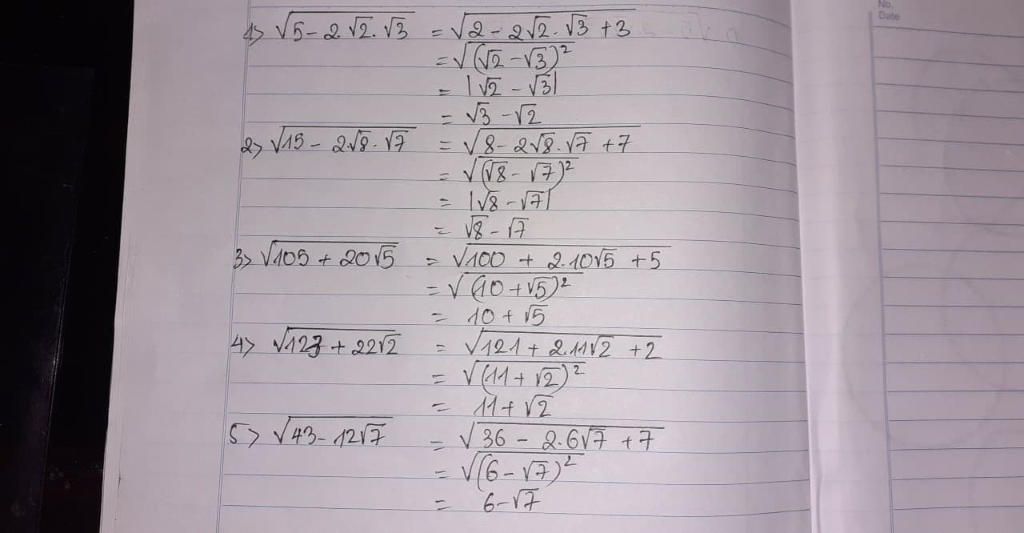 No.
Date
1> √(5 - 2√2.√3) = √(2 - 2√2.√3 + 3)
= √((√2 - √3)²)
= |√2 - √3|
= √3 - √2
2> √(15 - 2√8.√7) = √(8 - 2√8.√7 + 7)
= √((√8 - √7)²)
= |√8 - √7|
= √8 - √7
3> √(105 + 20√5) = √(100 + 2.10√5 + 5)
= √((10 + √5)²)
= 10 + √5
4> √(123 + 22√2) = √(121 + 2.11√2 + 2)
= √((11 + √2)²)
= 11 + √2
5> √(43 - 12√7) = √(36 - 2.6√7 + 7)
= √((6 - √7)²)
= 6 - √7